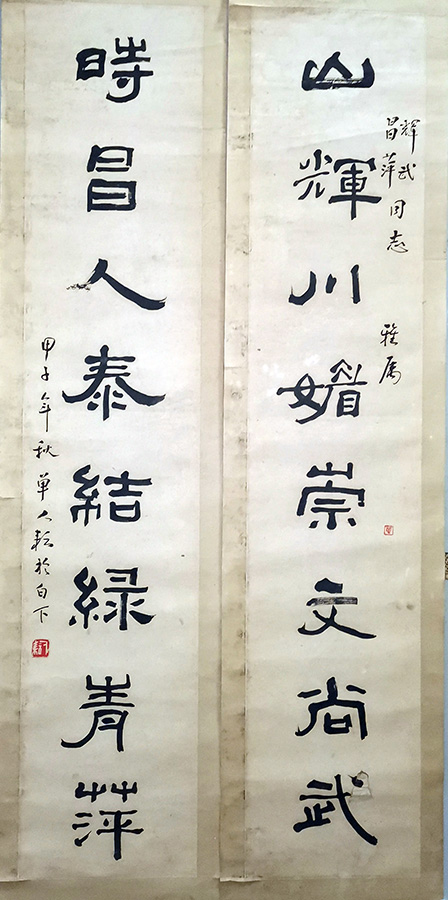 山輝川媚崇文尚武
輝武
昌萍同志 雅属
時昌人泰結緑青萍
甲子年秋單人耘於白下